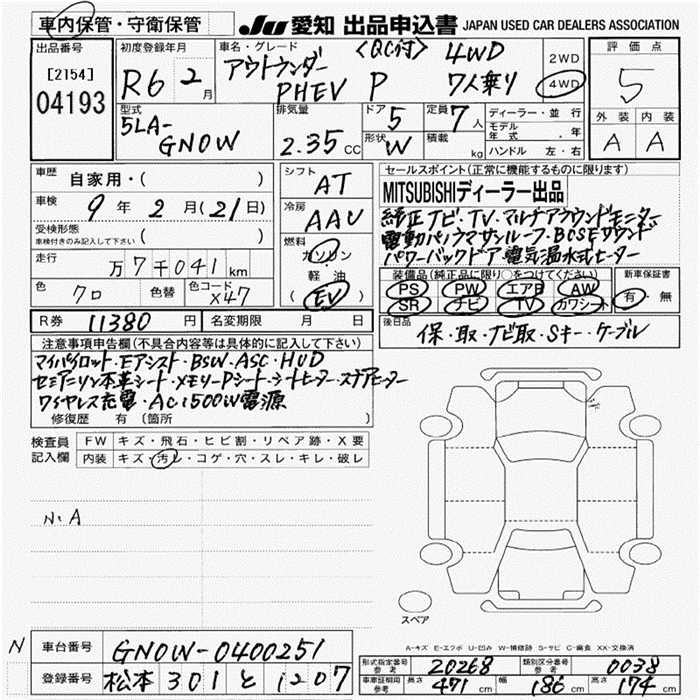 車内保管・守衛保管 JU 愛知 出品申込書 JAPAN USED CAR DEALERS ASSOCIATION
出品番号 初度登録年月 車名・グレード 〈QC付〉 4WD 2WD 評価点
[2154] R6 2月 アウトランダー PHEV P 7人乗り 4WD 5
04193
型式 排気量 ドア 5 定員 7人 ディーラー・並行 外装 内装
5LA- モデル年式 ・ 年
GN0W 2.35 CC 形状 W 積載 kg ハンドル 左・右 A A
車歴 自家用・( ) シフト AT セールスポイント(正常に機能するものに限ります)
車検 9年 2月(21日) 冷房 AAC MITSUBISHIディーラー出品
受検形態 純正ナビ・TV・マルチアラウンドモニター
車検付きのみ記入して下さい ( ) 燃料 電動パノラマサンルーフ・BOSEサウンド
走行 万7千041km ガソリン パワーバックドア 電気温水式ヒーター
軽油 装備品(純正品に限り○をつけてください) 新車保証書
色 クロ 色替 色コード X47 (EV) PS PW エアB AW 有・無
SR ナビ TV カワシート
R券 11380円 名変期限 月 日 後日品 保・取・ナビ取・Sキー・ケーブル
注意事項申告欄(不具合内容等は具体的に記入して下さい)
マイパイロット・Eアシスト・BSW・ASC・HUD
セミアニリン本革シート・メモリーPシート・シートヒーター・ステアヒーター
ワイヤレス充電・AC1500W電源
修復歴 有 〔箇所
検査員記入欄 FW キズ・飛石・ヒビ割・リペア跡・X要
内装 キズ・汚レ・コゲ・穴・スレ・キレ・破レ
N.A
スペア
A-キズ E-エクボ U-凹み W-補修跡 S-サビ C-腐食 XX-交換済
N 車台番号 GN0W-0400251 形式指定番号 参考 20268 類別区分番号 参考 0038
登録番号 松本 301 と 1207 車車証期間 参考 長さ 471 cm 幅 186 cm 高さ 174 cm